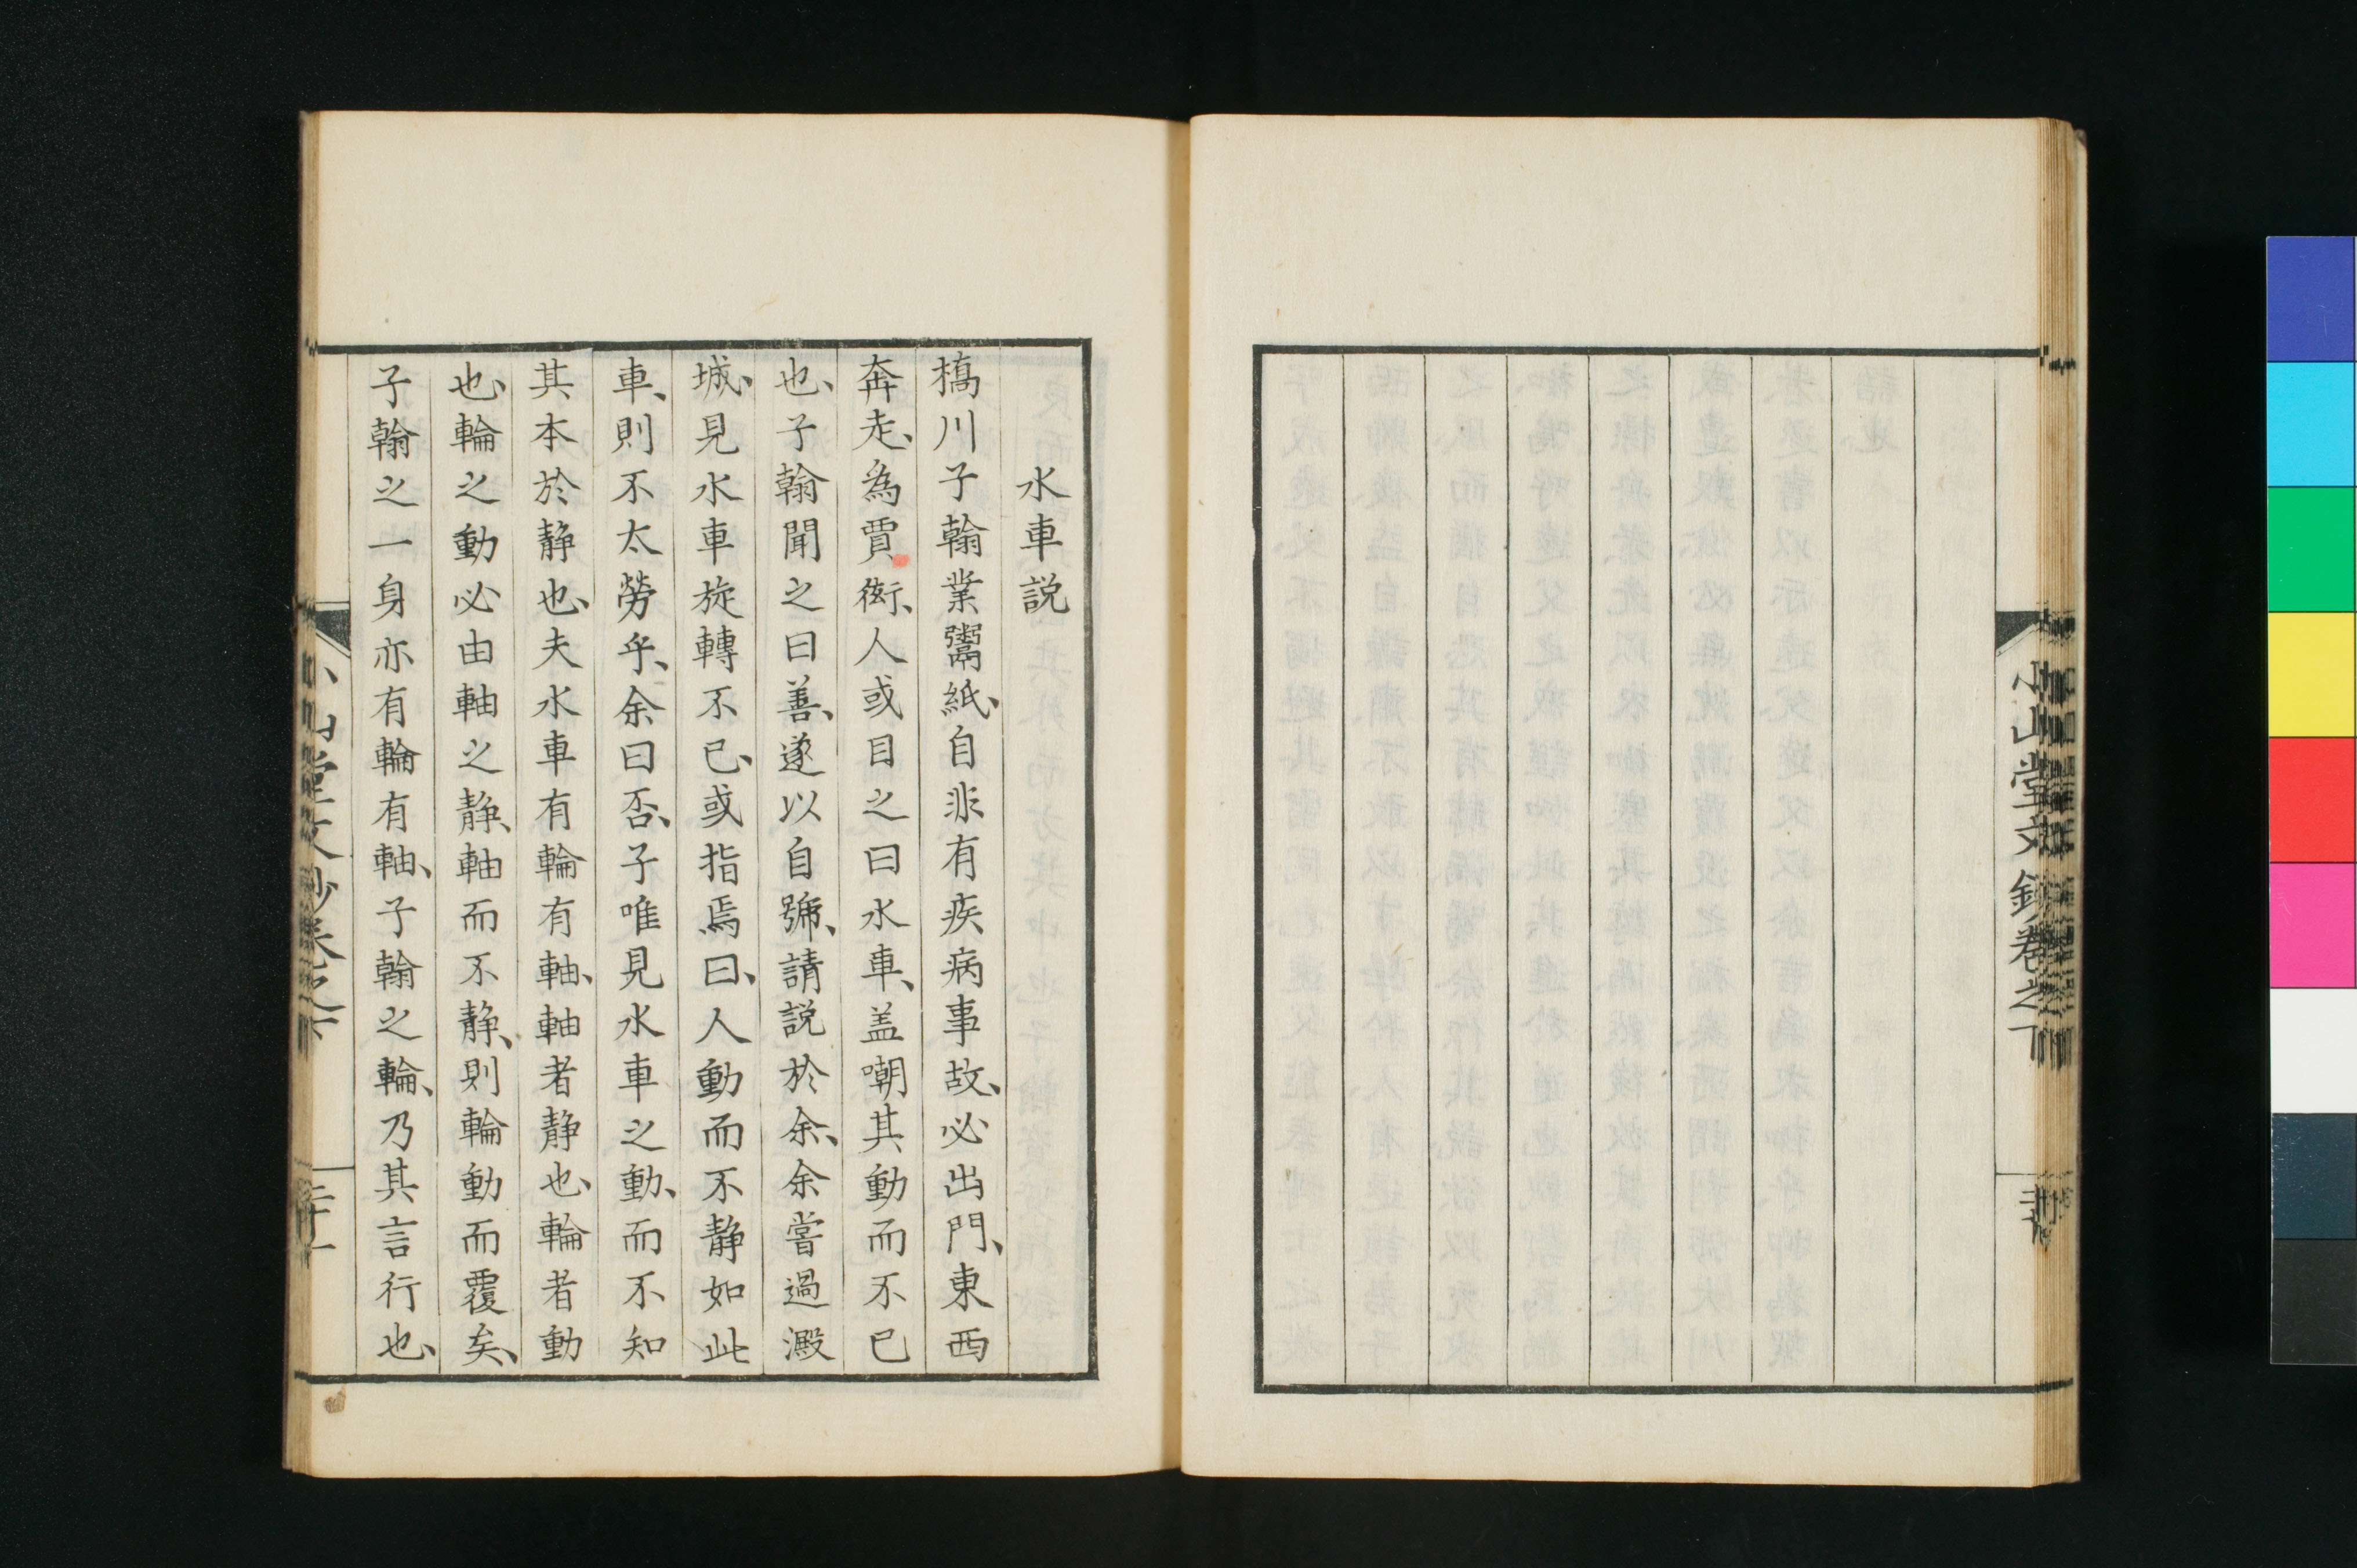 小山堂文鈔卷之下
水車説
橋川子翰業鬻紙、自非有疾病事故、必出門、東西
奔走、為賈衒、人或目之曰水車、盖嘲其動而不已
也、子翰聞之曰善、遂以自號、請説於余、余嘗過澱
城、見水車旋轉不已、或指焉曰、人動而不静如此
車、則不太勞乎、余曰否、子唯見水車之動、而不知
其本於静也、夫水車有輪有軸、軸者静也、輪者動
也、輪之動必由軸之静、軸而不静、則輪動而覆矣、
子翰之一身亦有輪有軸、子翰之輪、乃其言行也、
小山堂文鈔卷之下